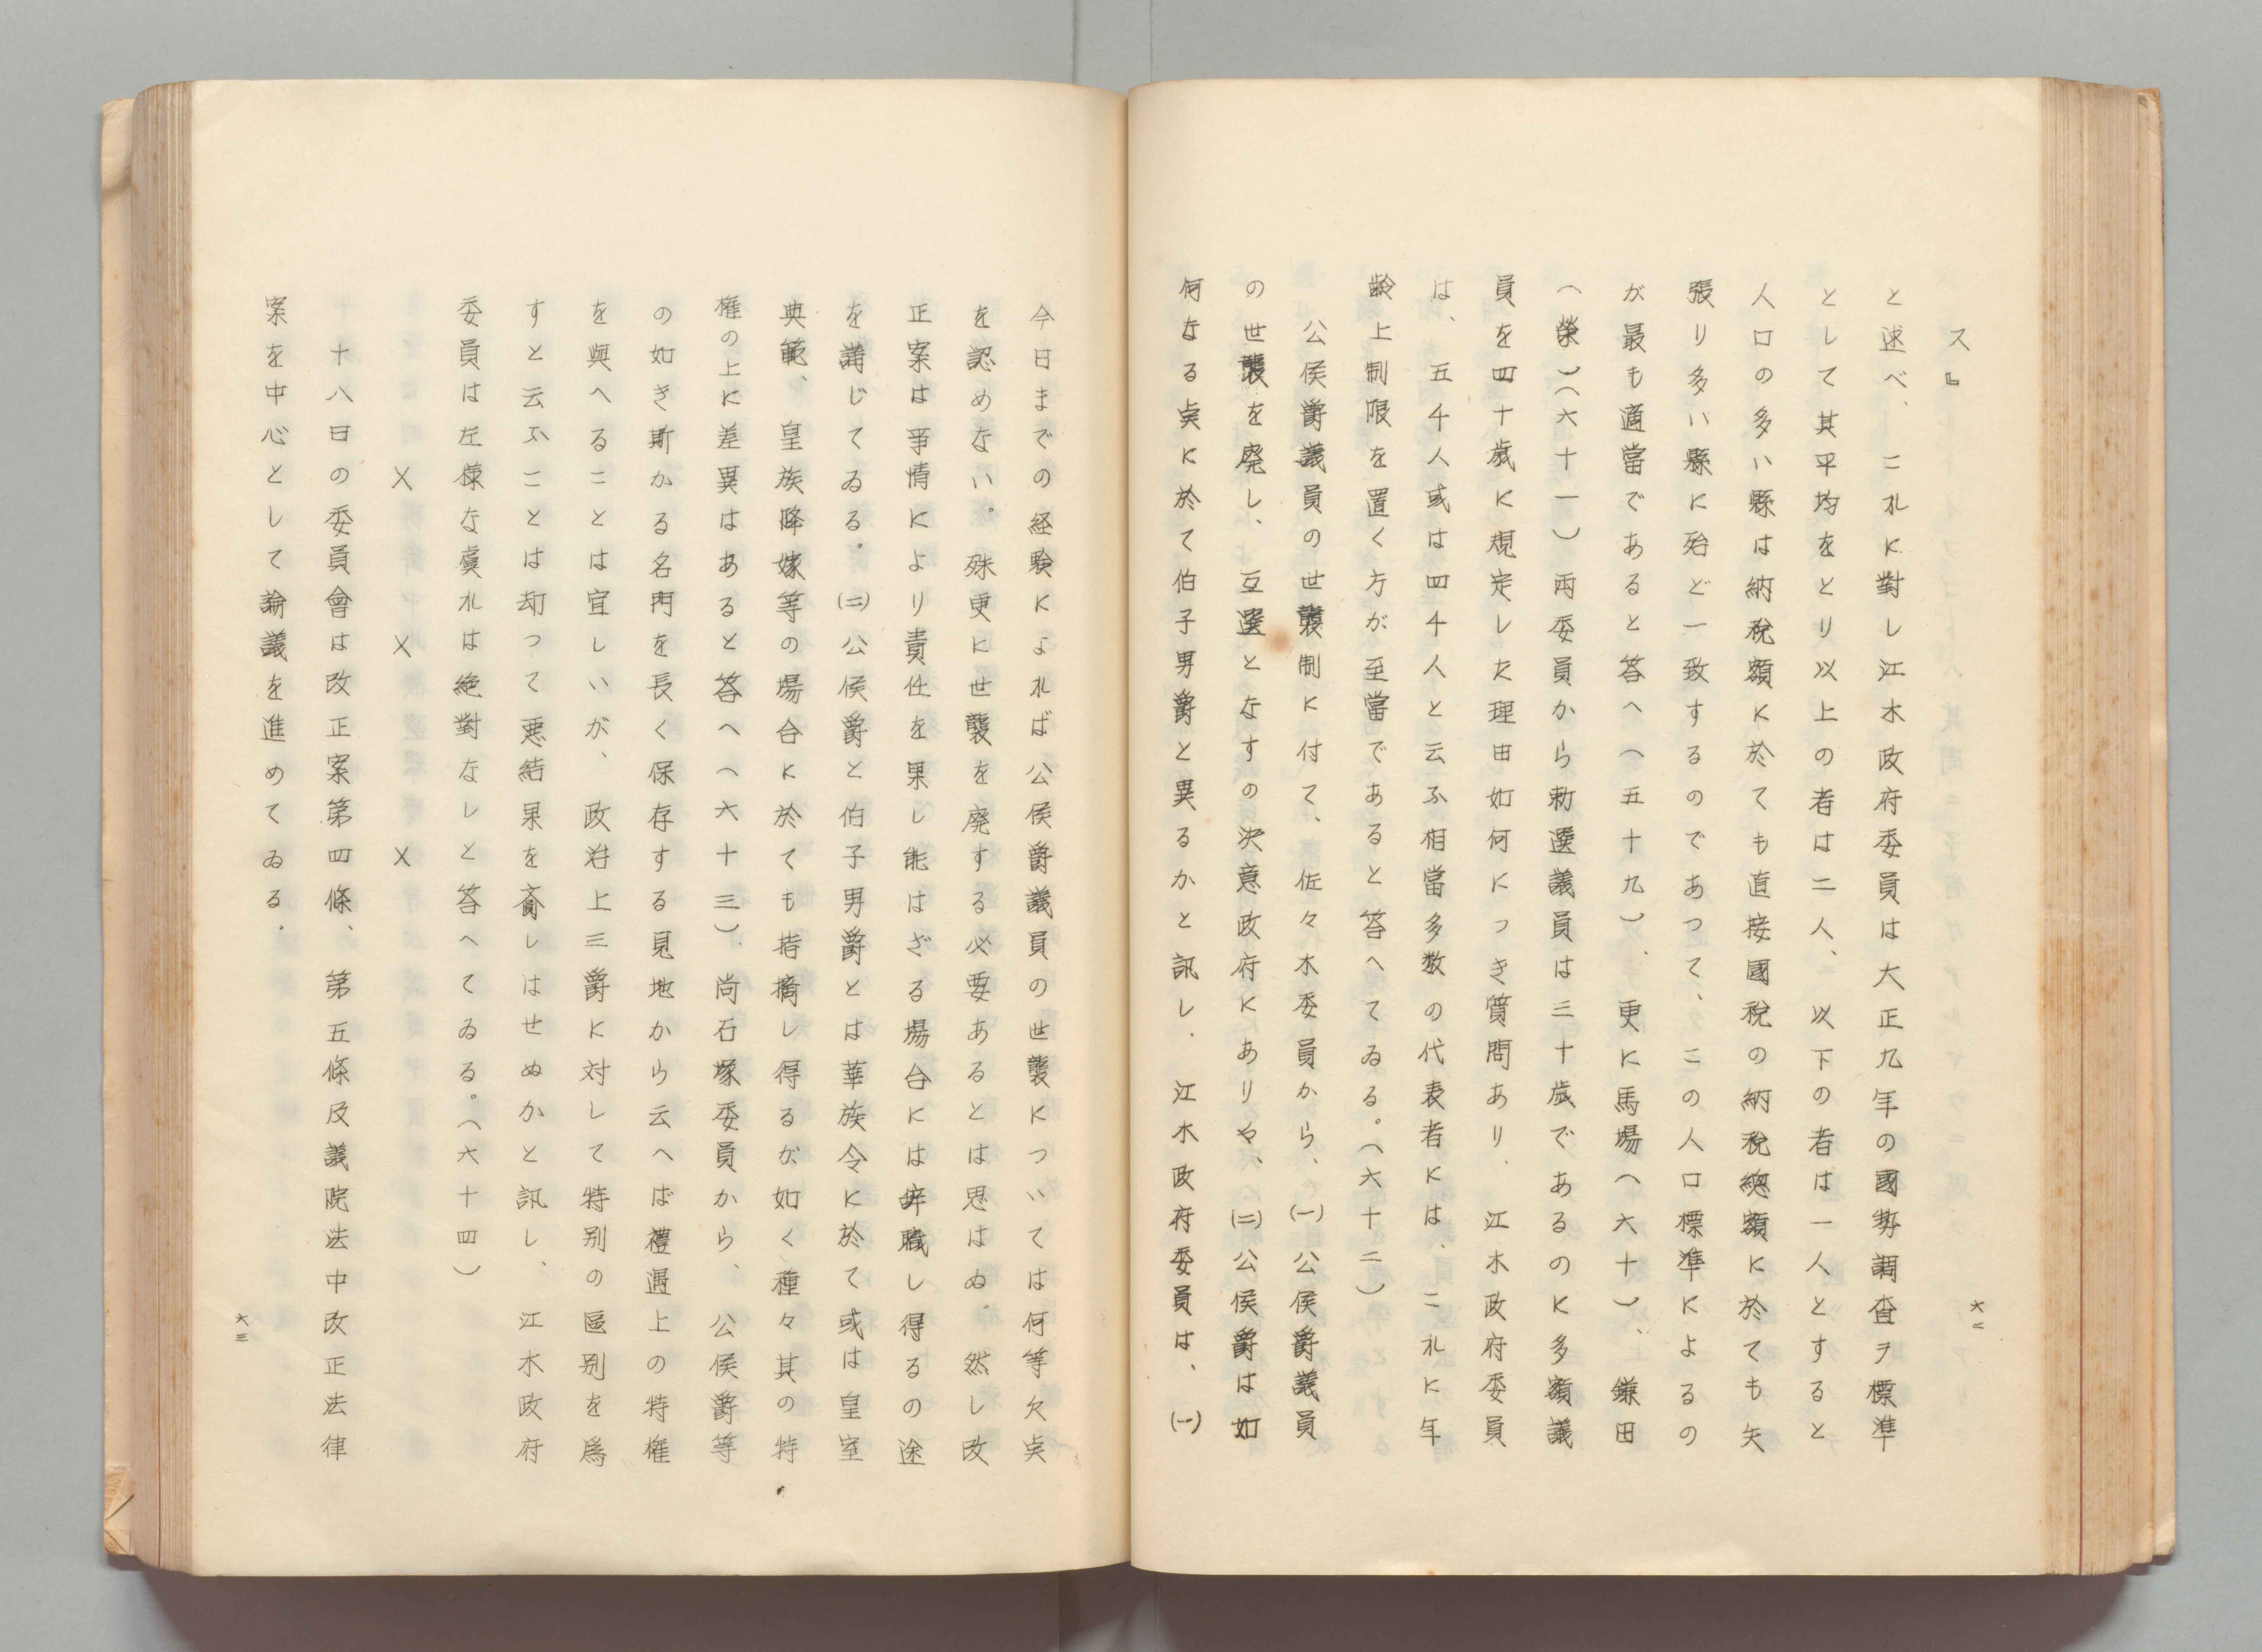 ス』
と述べ、これに對し江木政府委員は大正九年の國勢調査ヲ標準
として其平均をとり以上の者は二人、以下の者は一人とすると
人口の多い縣は納税額に於ても直接國税の納税總額に於ても矢
張り多い縣に殆ど一致するのであつて、この人口標準によるの
が最も適當であると答へ（五十九）、更に馬場（六十）、鎌田
（榮）（六十一）両委員から勅選議員は三十歳であるのに多額議
員を四十歳に規定した理由如何につき質問あり、江木政府委員
は、五千人或は四千人と云ふ相當多数の代表者には、これに年
齢上制限を置く方が至當であると答へてゐる。（六十二）
公侯爵議員の世襲制に付て、佐々木委員から、㈠公侯爵議員
の世襲を廃し、互選となすの決意政府にありや、㈡公侯爵は如
何なる点に於て伯子男爵と異るかと訊し、江木政府委員は、㈠
六二
今日までの経験によれば公侯爵議員の世襲については何等欠点
を認めない。殊更に世襲を廃する必要あるとは思はぬ、然し改
正案は事情により責任を果し能はざる場合には辞職し得るの途
を講じてゐる。㈡公侯爵と伯子男爵とは華族令に於て或は皇室
典範、皇族降嫁等の場合に於ても指摘し得るが如く種々其の特
権の上に差異はあると答へ（六十三）、尚石塚委員から、公侯爵等
の如き斯かる名門を長く保存する見地から云へば禮遇上の特権
を與へることは宜しいが、政治上三爵に対して特別の區別を爲
すと云ふことは却つて悪結果を齎しはせぬかと訊し、江木政府
委員は左様な虞れは絶對なしと答へてゐる。（六十四）
× × ×
十八日の委員會は改正案第四條、第五條及議院法中改正法律
案を中心として論議を進めてゐる。
六三